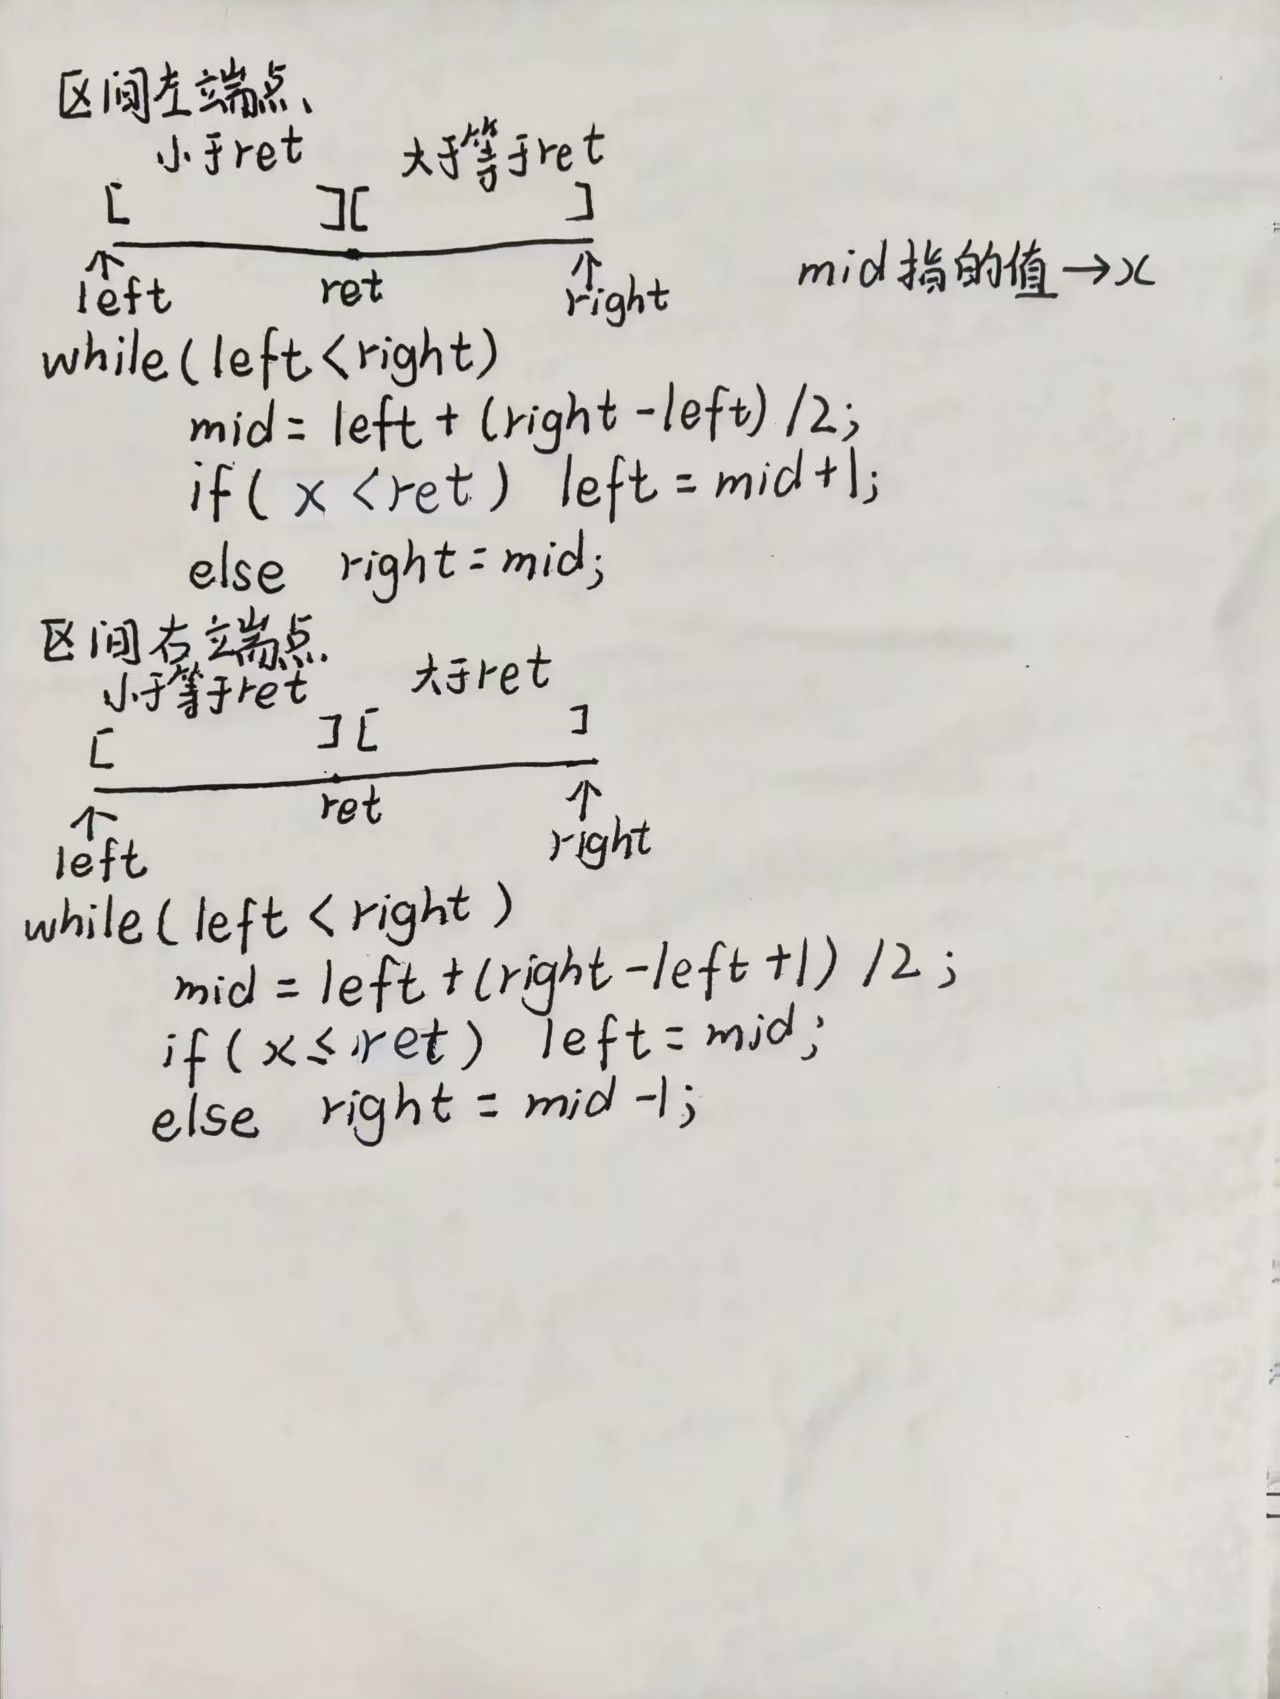 区间左端点、
小于ret 大于等于ret
[ ][ ]
left ret right
mid指的值→x
while(left<right)
mid=left+(right-left)/2;
if(x<ret) left=mid+1;
else right=mid;
区间右端点.
小于等于ret 大于ret
[ ][ ]
left ret right
while(left<right)
mid=left+(right-left+1)/2;
if(x≤ret) left=mid;
else right=mid-1;